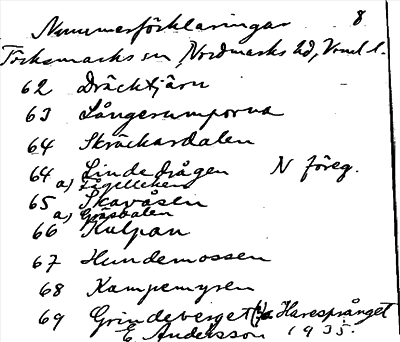 Nummerförklaringar 8
Töcksmarks sn, Nordmarks hd, Vrml l.
62 Dräcktjärn
63 Långerumporna
64 Skräckardalen
64 Lindedrågen N föreg.
a) Fågelleken
65 Skavåsen
a) Gäsbalen
66 Kulpan
67 Hundemossen
68 Kampemyren
69 Grindeberget Haresprånget
E. Andersson 1935.